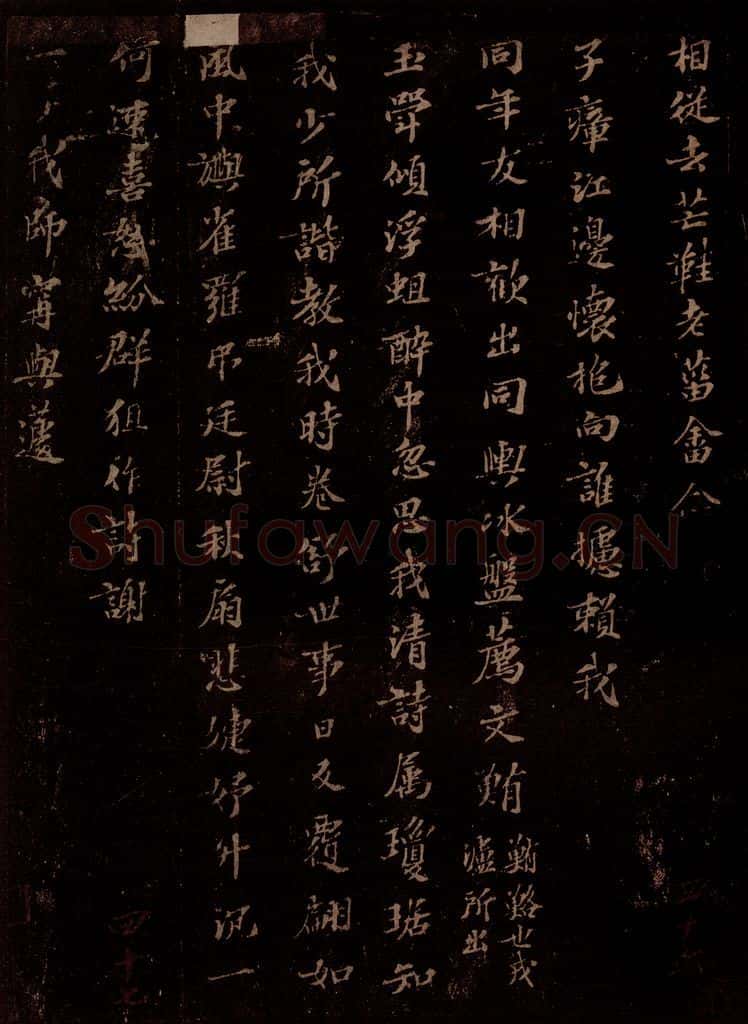 相從去芒鞋老菑畬
子瘴江邊懷抱向誰攄賴我
同年友相歡出同輿冰盤薦文鮪
鮪鮥也戎
瀘所出
玉斝傾浮蛆醉中忽思我清詩属瓊琚知
我少所諧教我時卷舒世事日反覆翩如
風中旟雀羅弔廷尉秋扇悲倢伃升沉一
何速喜怒紛群狙作詩謝
二子我師甯與蘧
四十七
Shufawang.CN